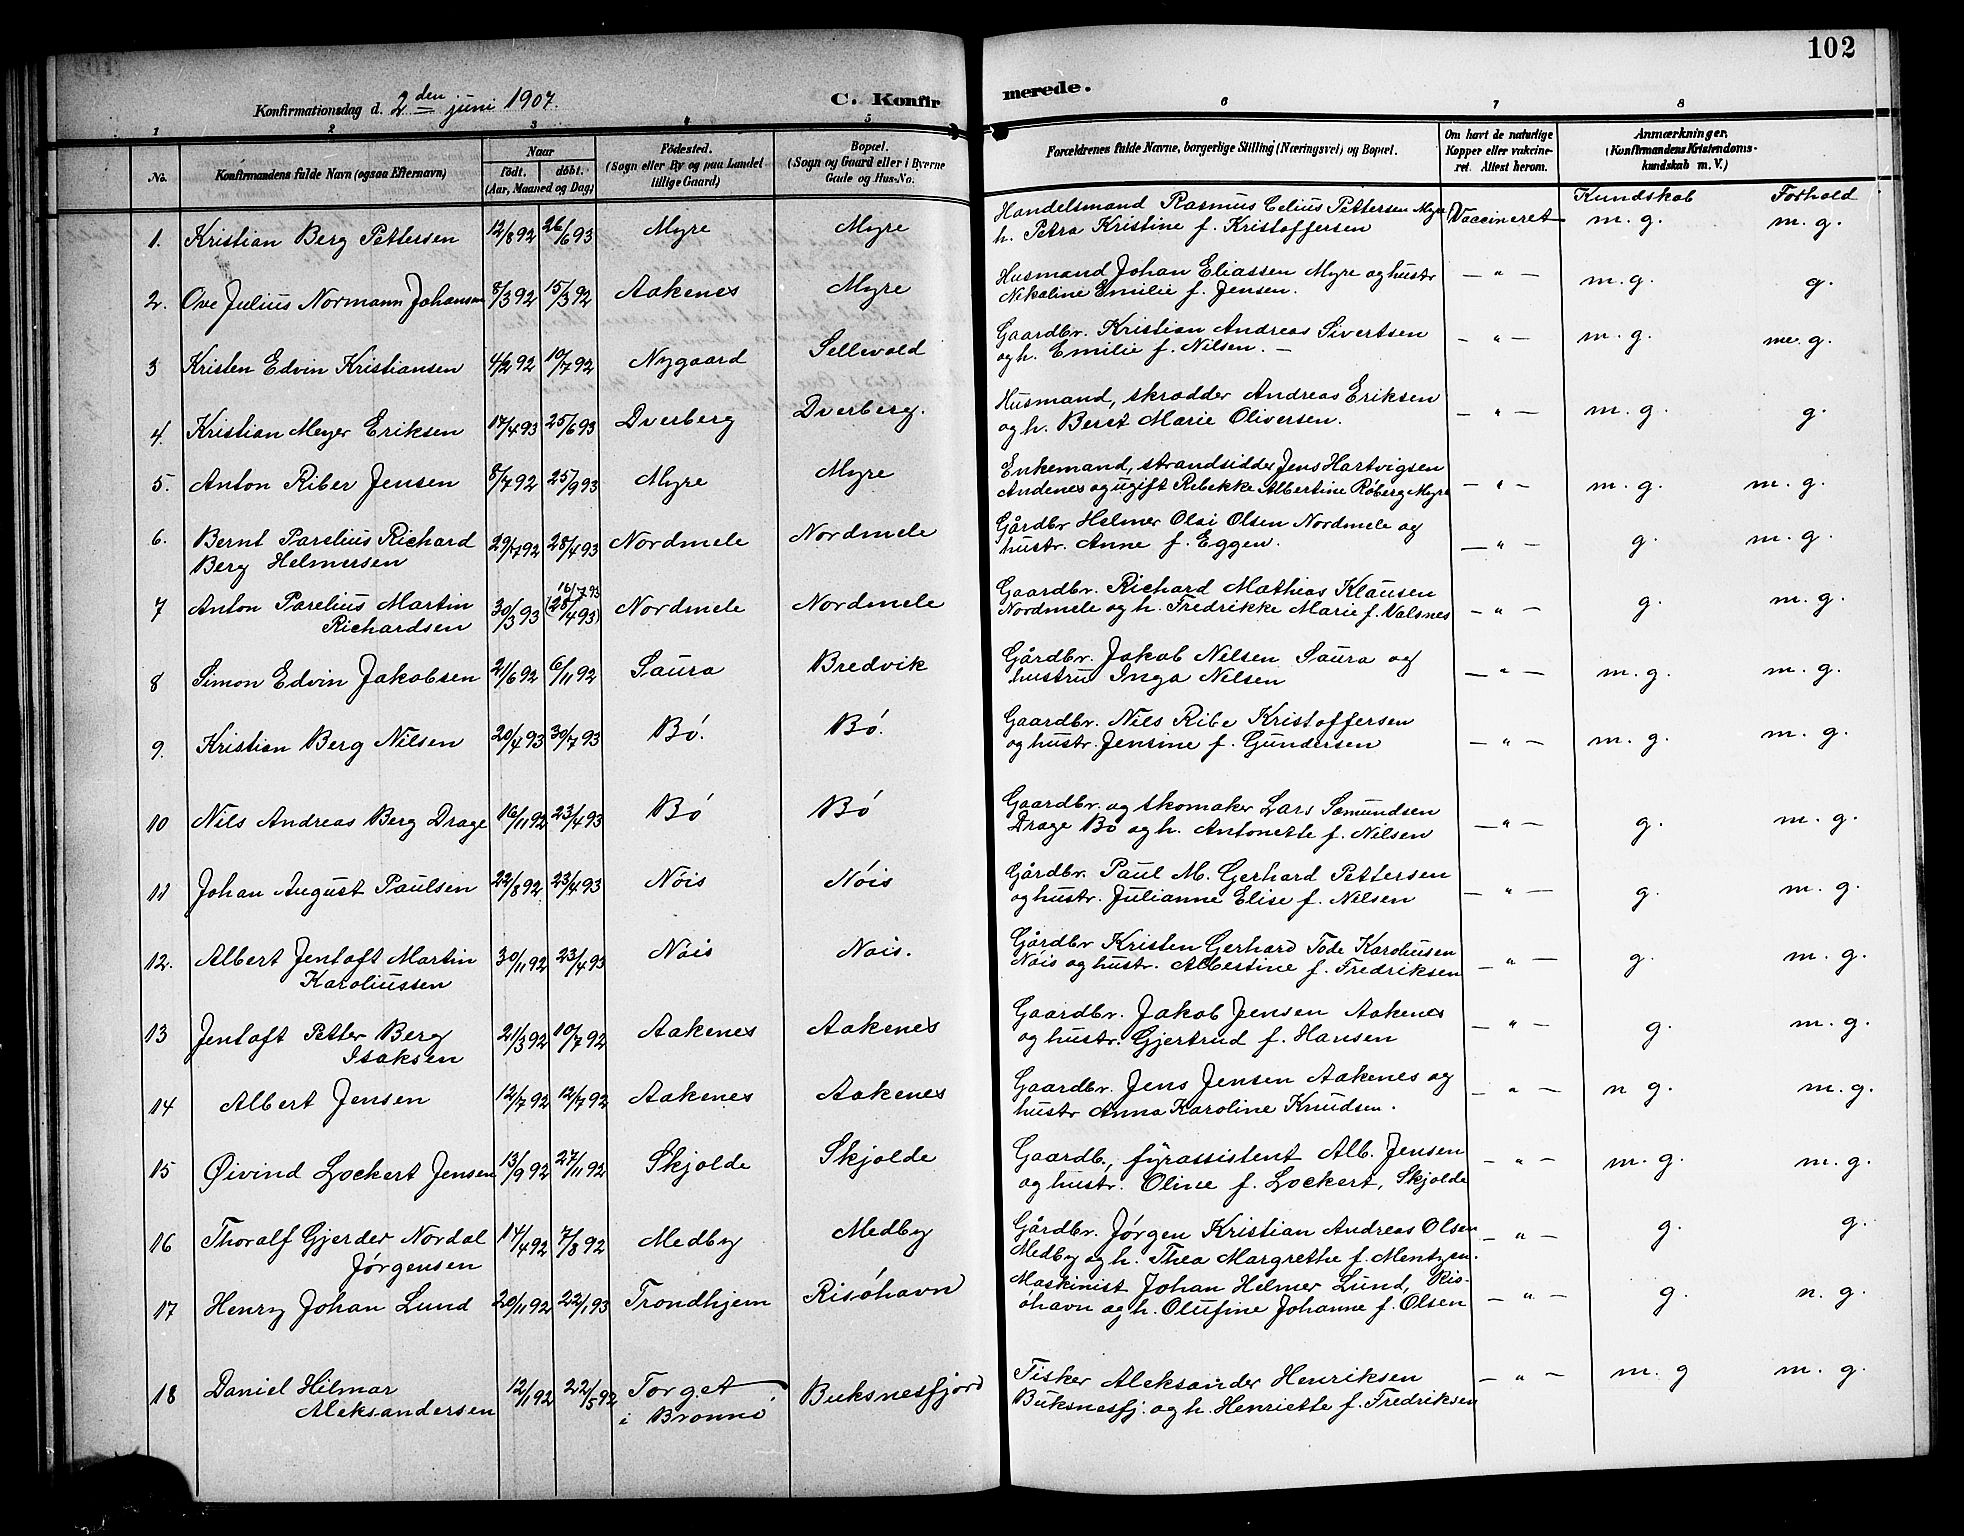 102
Konfirmationsdag d. 2den juni 1907.
C. Konfirmerede.
1 2 3 4 5 6 7 8
No. Konfirmandens fulde Navn (ogsaa Efternavn) Naar født. døbt. (Aar, Maaned og Dag) Fødested. (Sogn eller By og paa Landet tillige Gaard) Bopæl. (Sogn og Gaard eller i Byerne Gade og Hus-No. Forældrenes fulde Navne, borgerlige Stilling (Næringsvei) og Bopæl. Om havt de naturlige Kopper eller vakcineret. Attest herom. Anmærkninger, (Konfirmandens Kristendomskundskab m. V.)
Kundskab Forhold
1. Kristian Berg Pettersen 12/8 92 26/6 93 Myre Myre Handelsmand Rasmus Celius Pettersen Myre
h. Petra Kristine f. Kristoffersen Vaccineret m. g. m. g.
2. Ove Julius Normann Johansen 8/3 92 15/3 92 Aakenes Myre Husmand Johan Eliassen Myre og hustr
Nikoline Emilie f. Jensen. — " — m. g. g.
3 Kristen Edvin Kristiansen 4/2 92 10/7 92 Nygaard Sellevold Gaardbr. Kristian Andreas Sivertsen
og h. Emilie f. Nilsen. — — " — m. g. m. g.
4. Kristian Meyer Eriksen 17/4 93 25/6 93 Dverberg Dverberg. Husmand, skrædder Andreas Eriksen
og h. Beret Marie Oliversen. — " — m. g. g.
5. Anton Riber Jensen 8/7 92 25/9 93 Myre Myre Enkemand, strandsidder Jens Hartvigsen
Andenes og ugift Ribekke Albertine Røberg Myre — " — m. g. m. g.
6. Bernt Parelius Richard
Berg Helmersen 29/7 92 28/4 93 Nordmele Nordmele Gårdbr Helmer Olai Olsen Nordmele og
hustr. Anne f. Eggen. — " — g. m. g.
7 Anton Parelius Martin
Richardsen 30/3 93 16/7 93 (28/4 93) Nordmele Nordmele Gaardbr. Richard Mathias Klausen
Nordmele og h. Fredrikke Marie f. Valsnes — " — g. m. g.
8 Simon Edvin Jakobsen 21/6 92 6/11 92 Saura Bredvik Gårdbr. Jakob Nilsen Saura og
hustru Inga Nilsen — " — m. g. m. g.
9. Kristian Berg Nilsen 20/4 93 30/7 93 Bó. Bó. Gaardbr. Nils Ribe Kristoffersen
og hustr. Jensine f. Gundersen — " — m. g. m. g.
10 Nils Andreas Berg Drage 16/11 92 23/4 93 Bó Bó Gaardbr. og skomaker Lars Samundsen
Drage Bo og h. Antonette f. Nilsen — " — g. m. g.
11 Johan August Paulsen 22/8 92 23/4 93 Nóis Nóis Gårdbr. Paul M. Gerhard Pettersen
og hustr. Julianne Elise f. Nilsen — " — g. m. g.
12. Albert Jentoft Martin
Karoliussen 30/11 92 23/4 93 Nóis Nois. Gårdbr Kristen Gerhard Tode Karoliusen
Nóis og hustr. Albertine f. Fredriksen — " — g. m. g.
13 Jentoft Petter Berg
Isaksen 21/3 92 10/7 92 Aakenes Aakenes Gaardbr. Jakob Jensen Aakenes
og hustr. Gjertrud f. Hansen — " — g. m. g.
14 Albert Jensen 12/7 92 12/7 92 Aakenes Aakenes Gaardbr. Jens Jensen Aakenes og
hustr Anna Karoline Knudsen. — " — n g. m. g.
15 Øivind Lockert Jensen 13/9 92 27/11 92 Skjolde Skjolde Gaardb., fyrassistent Alb. Jensen
og hustr. Oline f. Lockert, Skjolde — " — m. g. m. g.
16 Thoralf Gjerder Nordal
Jørgensen 14/4 92 7/8 92 Medby Medby Gårdbr. Jørgen Kristian Andreas Olsen
Medby og h. Thea Margrethe f. Mentzen. — " — g. g.
17 Henry Johan Lund 20/11 92 22/1 93 Trondhjem Risóhavn Maskinist Johan Helmer Lund, Ris-
óhavn og h. Olufine Johanne f. Olsen — " — g. n. g.
18 Daniel Hilmar
Aleksandersen 12/1 92 22/5 92 Torget
i Bronnó Buksnesfjord Fisker Aleksander Henriksen
Buksnesfj. og h. Henriette f. Fredriksen — " — m. g m. g.